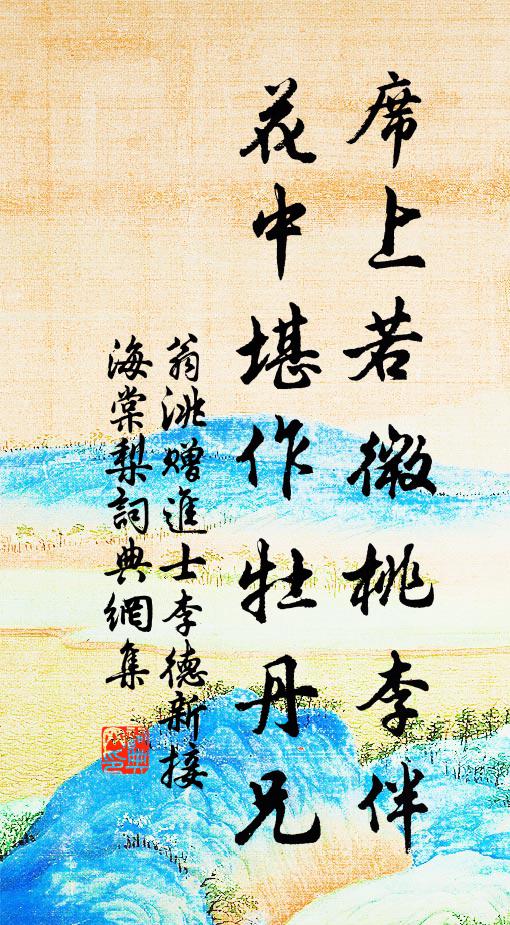 席上若微桃李伴
花中堪作牡丹兄
翁洮赠進士李德新接
海棠梨詞典網集